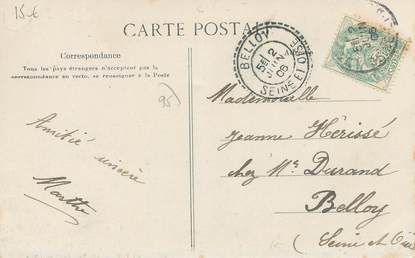 15€
CARTE POSTALE
Correspondance
Tous les pays étrangers n'acceptent pas la
correspondance au recto, se renseigner à la Poste
95
BELLOY
2
JUIN
06
SEINE ET OISE
Mademoiselle
Jeanne Hérissé
chez Mr Durand
Belloy
(Seine et Oise
Amitié sincère
Marthe